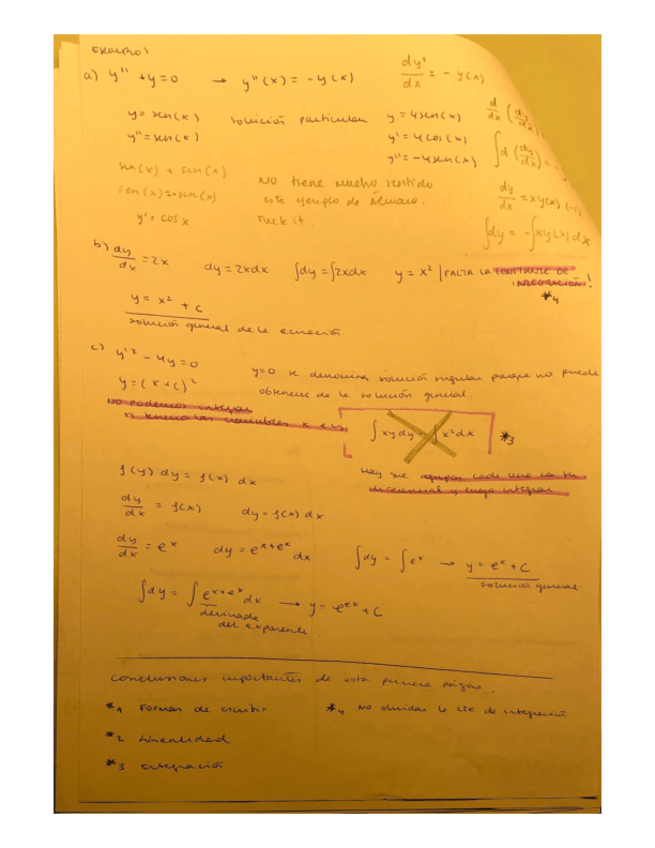 EJEMPLOS
a) y'' + y = 0 → y''(x) = - y(x) dy'/dx = - y(x)
y = sen(x) solución particular y = 4sen(x) d/dx (dy/dx) =
y'' = sen(x) y' = 4cos(x) ∫d (dy/dx) = -
y'' = -4sen(x)
sen(x) + sen(x) NO tiene mucho sentido
sen(x) = -sen(x) este ejemplo de dy/dx = xy(x) (-1)
y' = cos x Fuck it. ∫dy = -∫xy(x)dx
b) dy/dx = 2x dy = 2xdx ∫dy = ∫2xdx y = x² | FALTA LA CONSTANTE DE INTEGRACIÓN!
*4
y = x² + c
solución general de la ecuación
c) y'² - 4y = 0 y=0 se denomina solución singular porque no puede
y = (x+c)² obtenerse de la solución general.
NO podemos integrar
si tenemos las variables x e y ∫xy dy = ∫x²dx *3
f(y) dy = f(x) dx Hay que agrupar cada una con su
diferencial y luego integrar
dy/dx = f(x) dy = f(x) dx
dy/dx = eˣ dy = e^(x+eˣ) dx ∫dy = ∫eˣ → y = eˣ + C
solución general
∫dy = ∫e^(x+eˣ) dx → y = e^(eˣ) + C
derivada
del exponente.
Conclusiones importantes de esta primera página.
*1 Formas de escribir *4 No olvidar la cte de integración
*2 Linealidad
*3 Integración